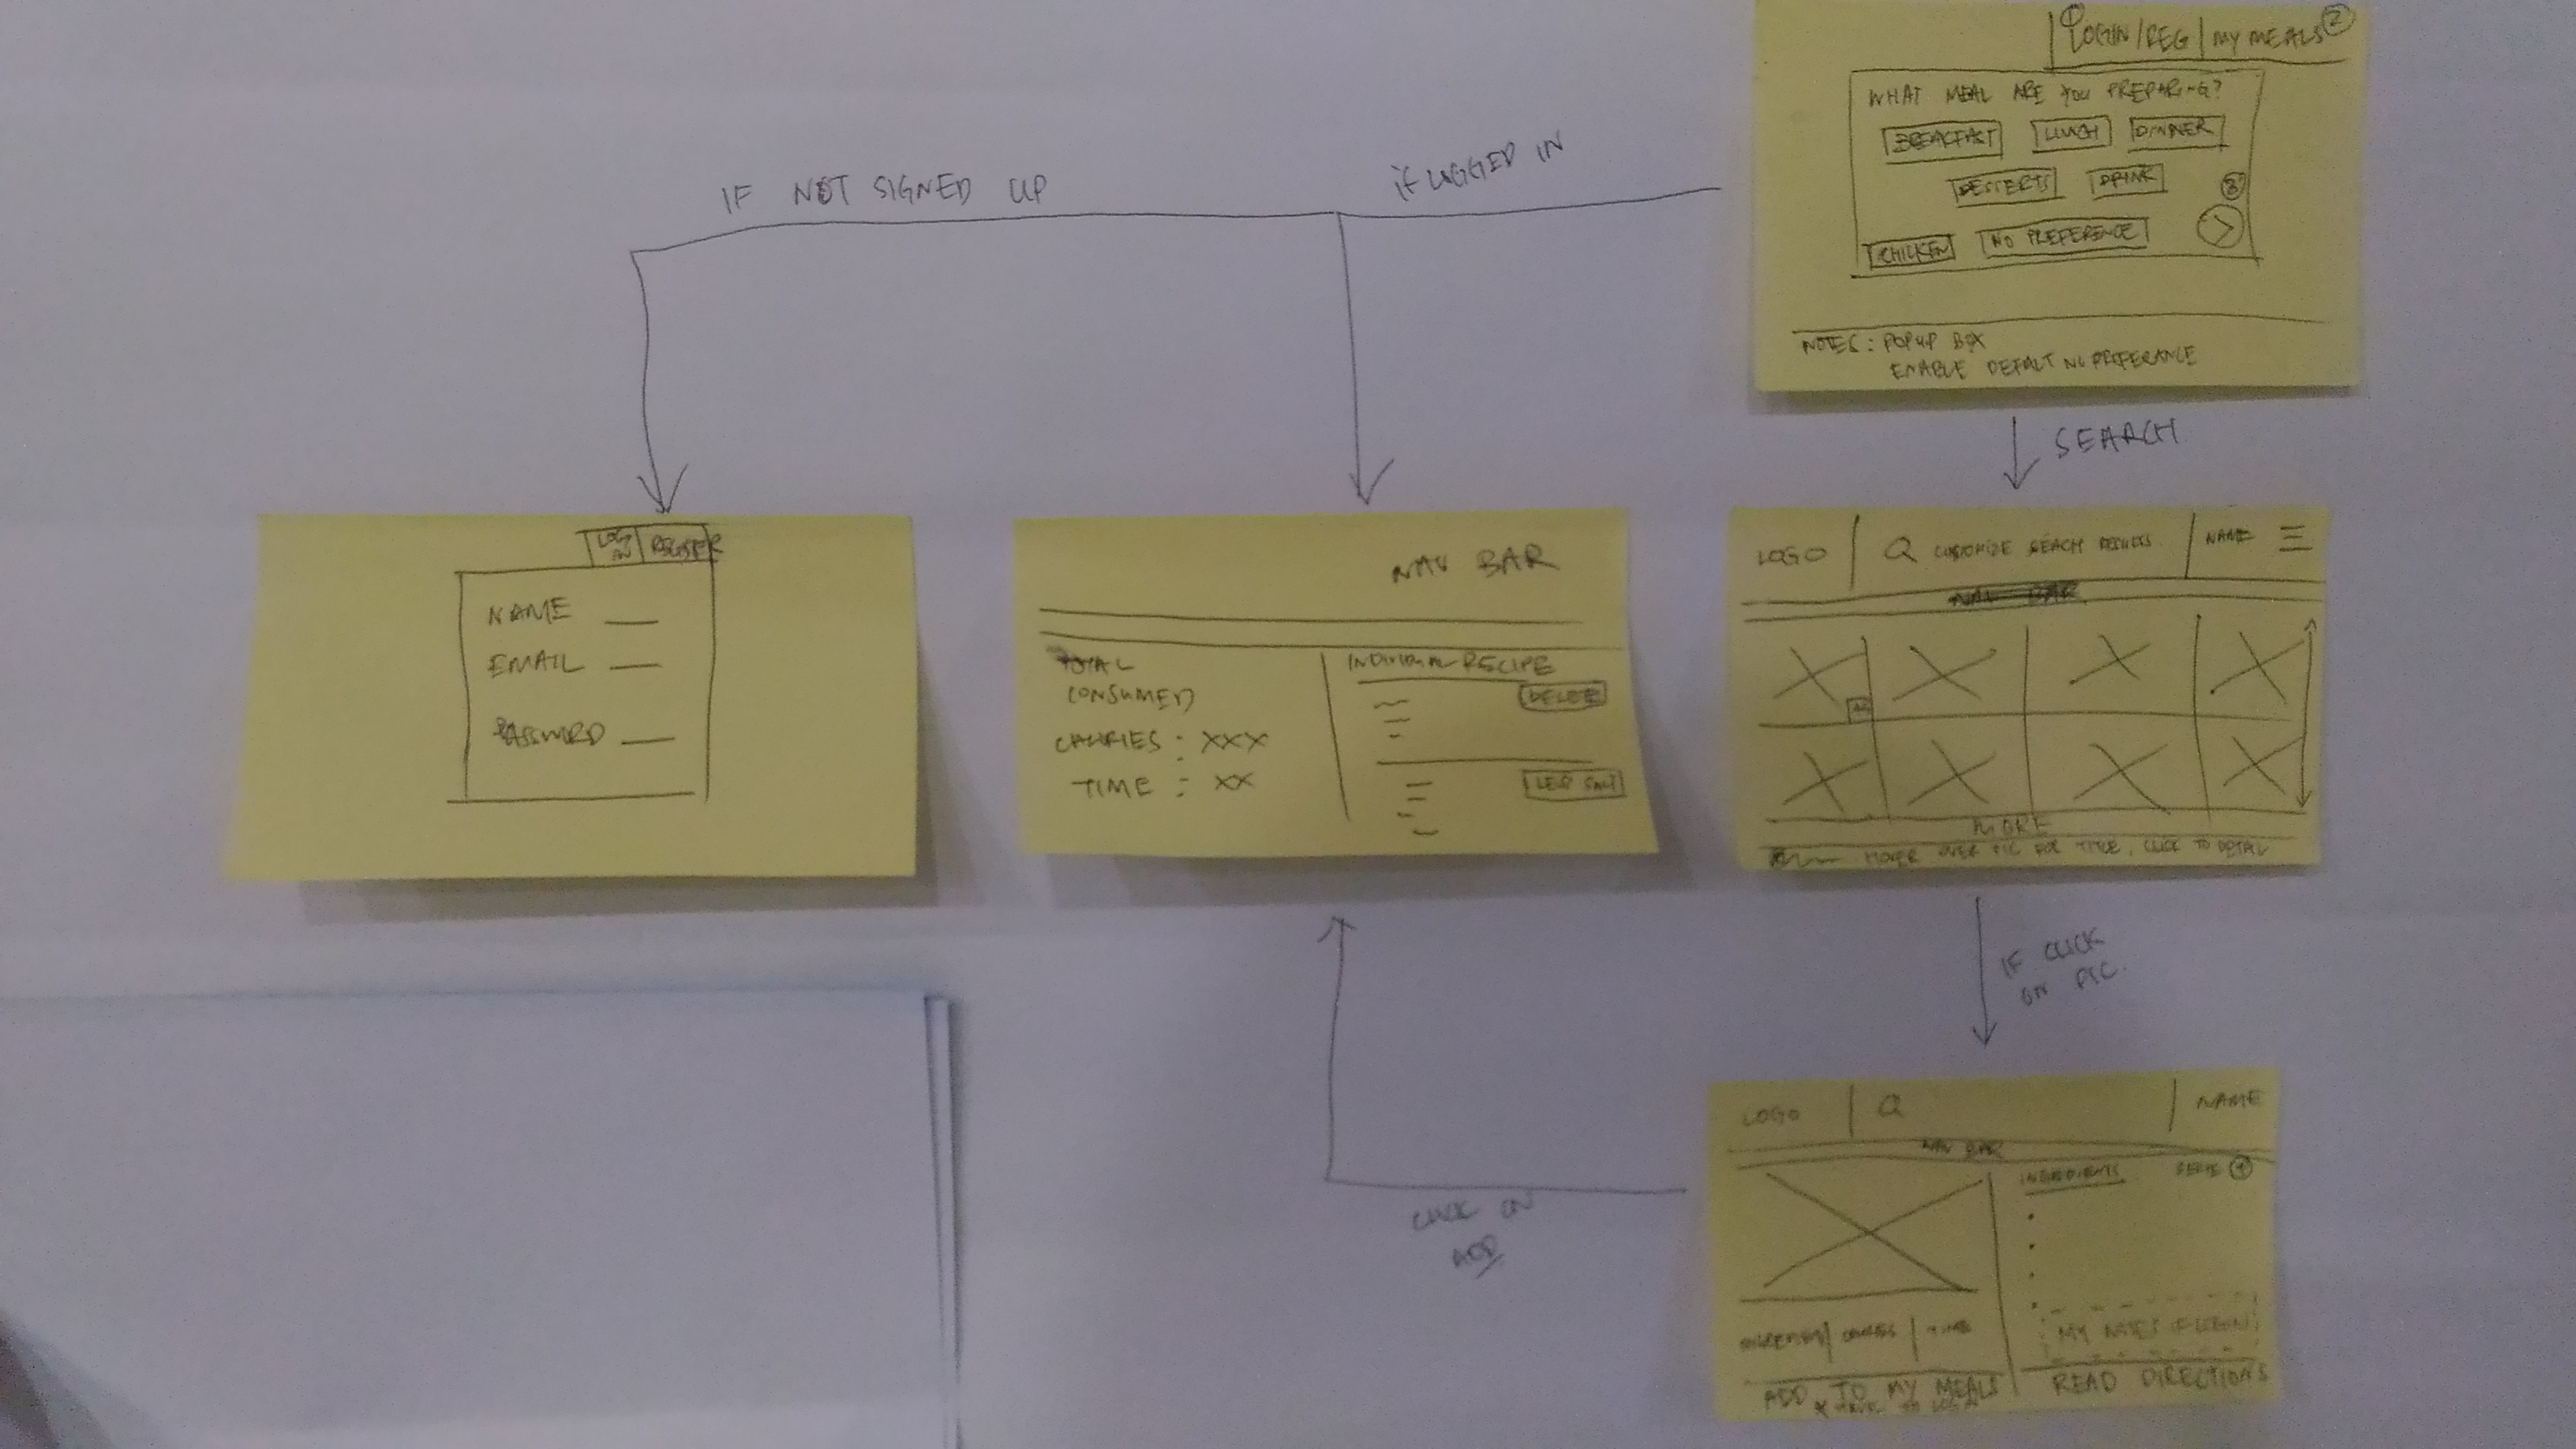 LOGIN/REG | MY MEALS 2
WHAT MEAL ARE YOU PREPARING?
BREAKFAST LUNCH DINNER
DESSERTS DRINK
3
CHICKEN NO PREFERENCE >
NOTES: POPUP BOX
ENABLE DEFALT NO PREFERANCE
IF NOT SIGNED UP
IF LOGGED IN
SEARCH
LOG IN REGISTER
NAME
EMAIL
PASSWORD
NAV BAR
TOTAL
CONSUMED
CALORIES : XXX
TIME : XX
INDIVIDUAL RECIPE
DELETE
LESS SALT
LOGO CUSTOMIZE SEACH RESULTS NAME
NAV BAR
MORE
HOVER OVER PIC FOR TITLE, CLICK TO DETAIL
IF CLICK
ON PIC.
CLICK ON
ADD
LOGO NAME
NAV BAR
INGREDIENTS
CALORIES | TIME
MY NOTES IF LOGIN
ADD TO MY MEALS
READ DIRECTIONS